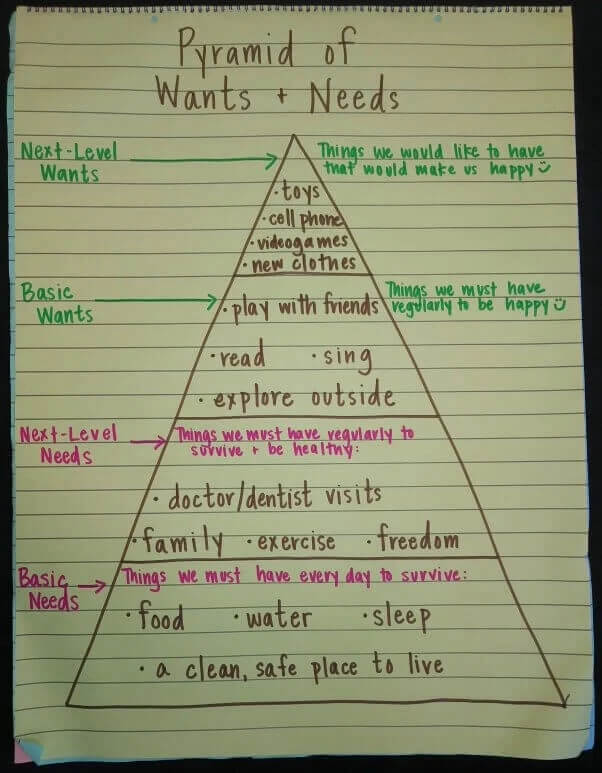 Pyramid of
Wants + Needs
Next-Level
Wants
Things we would like to have
that would make us happy
• toys
• cell phone
• videogames
• new clothes
Basic
Wants
Things we must have
regularly to be happy
• play with friends
• read • sing
• explore outside
Next-Level
Needs
Things we must have regularly to
survive + be healthy:
• doctor/dentist visits
• family • exercise • freedom
Basic
Needs
Things we must have every day to survive:
• food • water • sleep
• a clean, safe place to live